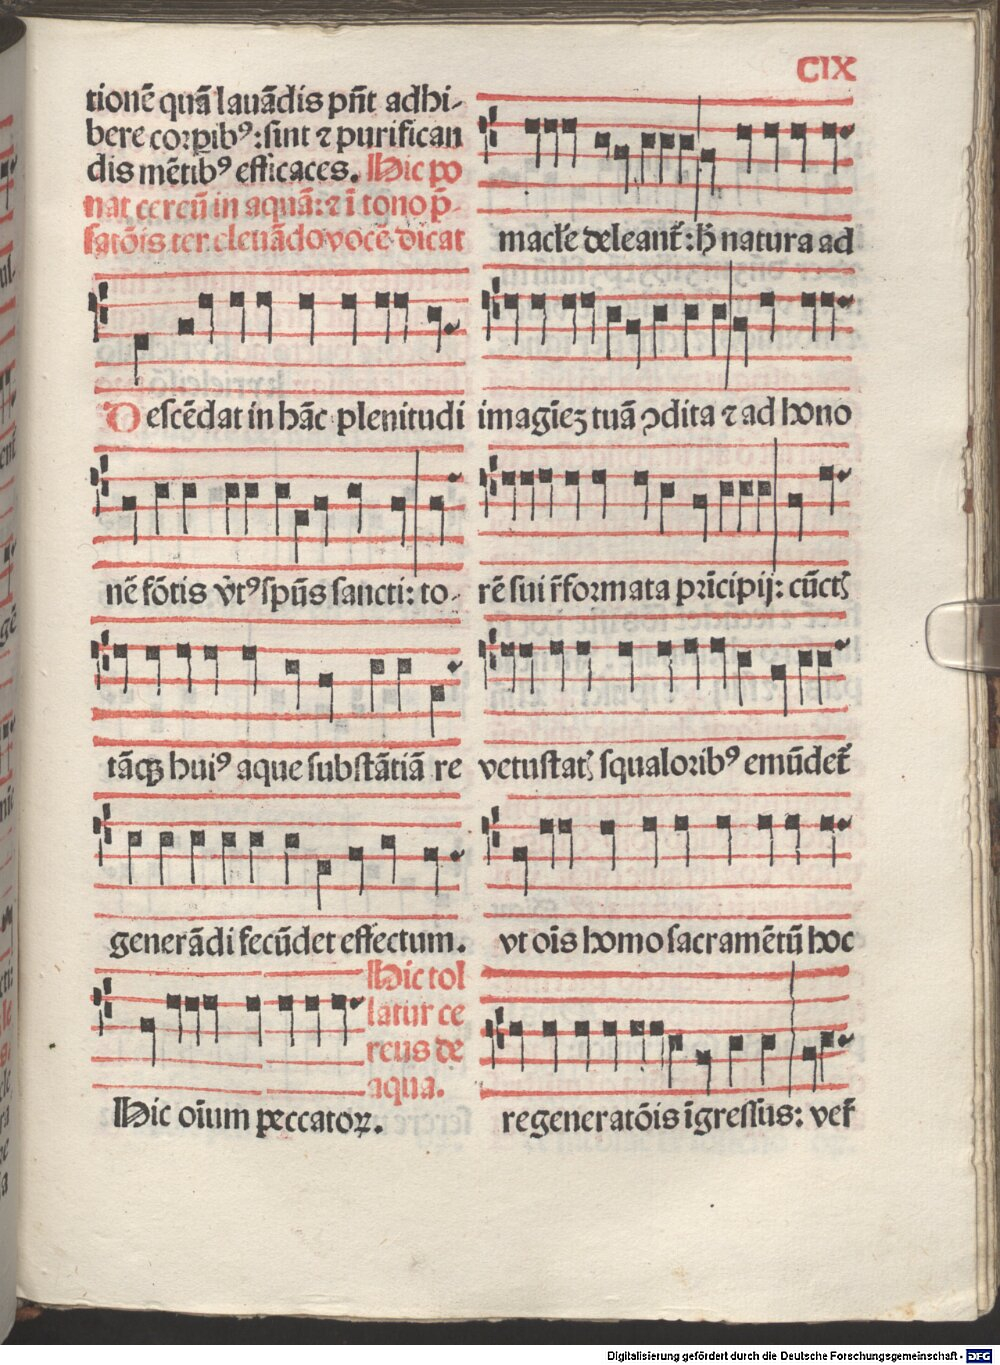 CIX
tionē quā lauādis pn̄t adhi-
bere corꝑibꝰ: sint ⁊ purifican
dis mētibꝰ efficaces. Hic po
nat cereū in aquā: ⁊ ī tono p̄-
fatōis ter eleuādo voce dicat
Descēdat in hāc plenitudi
nē fōtis vtꝰ spūs sancti: to-
tāqꝫ huiꝰ aque substātiā re
generādi fecūdet effectum.
Hic tol
latur ce
reus de
aqua.
Hic oīum peccatoꝝ.
macl'e deleant̄: h̄ natura ad
imagīeꝫ tuā ↄdita ⁊ ad hono
rē sui r̄formata prīcipij: cūct
vetustat squaloribꝰ emūdet̄
vt oīs homo sacramētū hoc
regeneratōis īgressus: ver̄
Digitalisierung gefördert durch die Deutsche Forschungsgemeinschaft - DFG